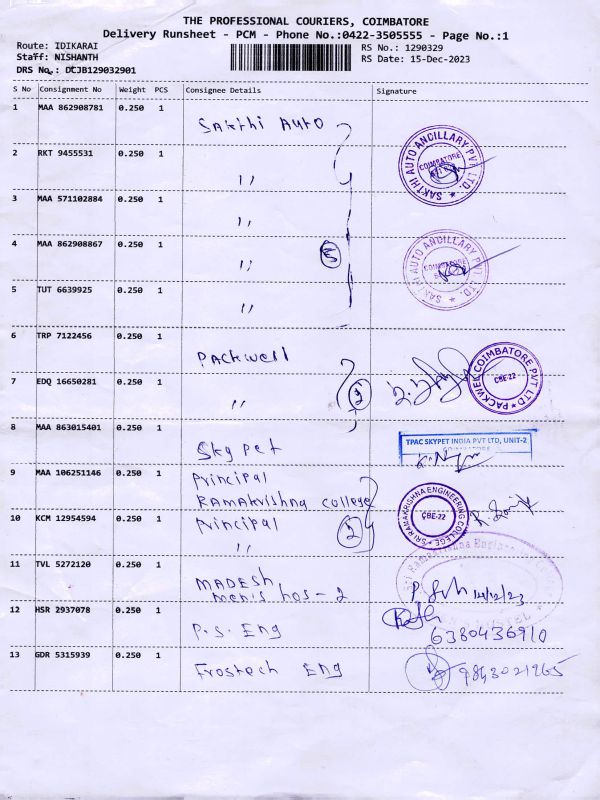 THE PROFESSIONAL COURIERS, COIMBATORE
Delivery Runsheet - PCM - Phone No.:0422-3505555 - Page No.:1
Route: IDIKARAI RS No.: 1290329
Staff: NISHANTH RS Date: 15-Dec-2023
DRS No.: DCJB129032901
S No Consignment No Weight PCS Consignee Details Signature
1 MAA 862908781 0.250 1 Sakthi Auto
SAKTHI AUTO ANCILLARY PVT LTD. COIMBATORE
2 RKT 9455531 0.250 1 ''
3 MAA 571102884 0.250 1 ''
4 MAA 862908867 0.250 1 '' 5
SAKTHI AUTO ANCILLARY PVT LTD. COIMBATORE
5 TUT 6639925 0.250 1 ''
6 TRP 7122456 0.250 1 Packwell
PACKWEL COIMBATORE PVT LTD CBE-22
7 EDQ 16650281 0.250 1 '' 2
8 MAA 863015401 0.250 1 Skypet
TPAC SKYPET INDIA PVT LTD, UNIT-2
COIMBATORE
9 MAA 106251146 0.250 1 Principal
Ramakrishna college
SRI RAMAKRISHNA ENGINEERING COLLEGE CBE-22
10 KCM 12954594 0.250 1 Principal 2
''
11 TVL 5272120 0.250 1 MADESH
Men's hos - 2
14/12/23
12 HSR 2937078 0.250 1 P.S. Eng
6380436910
13 GDR 5315939 0.250 1 Frostech Eng 9843021965